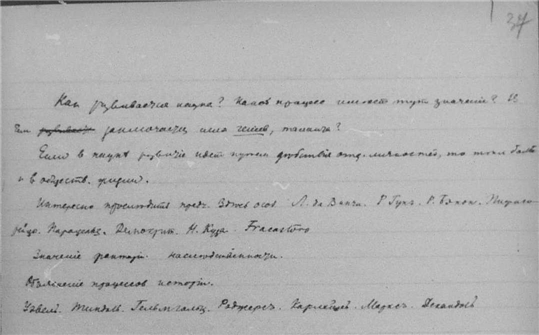 37
Как развивается наука? Какой процесс имеет тут значение? И
чем заключается сила гениев, таланта?
Если в науке развитие идет путем действия отд. личностей, то
в обществ. жизни.
Интересно проследить пред. Здесь особ. Л. да Винчи. Р. Гукъ. Р. Бэконъ.
Парацельс. Демокрит. Н. Куза. Fracastoro
Значение фактор. наследственности.
Объяснение процессов истории.
Уэвелл. Тиндаль. Гельмгольц. Роджерс. Карлейль. Маркс. Декандоль